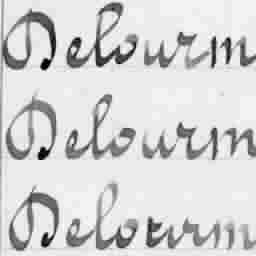 Delourm
Delourm
Delourm